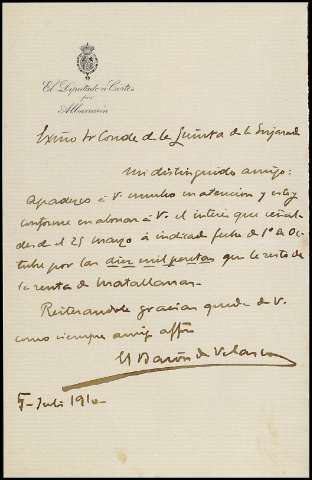 El Diputado a Cortes
por
Albarracín
Exmo Sr Conde de la Quinta de la Enjarada
Mi distinguido amigo:
Agradezco á V. mucho su atencion y estoy
conforme en abonar á V. el interés que
desde el 25 marzo á indicada fecha de 1º de Oc-
tubre por las diez mil pesetas que le resto de
la renta de Matallana.
Reiterandole gracias queda de V.
como siempre amigo affmo
El Barón de Velasco
5- Julio 1910-